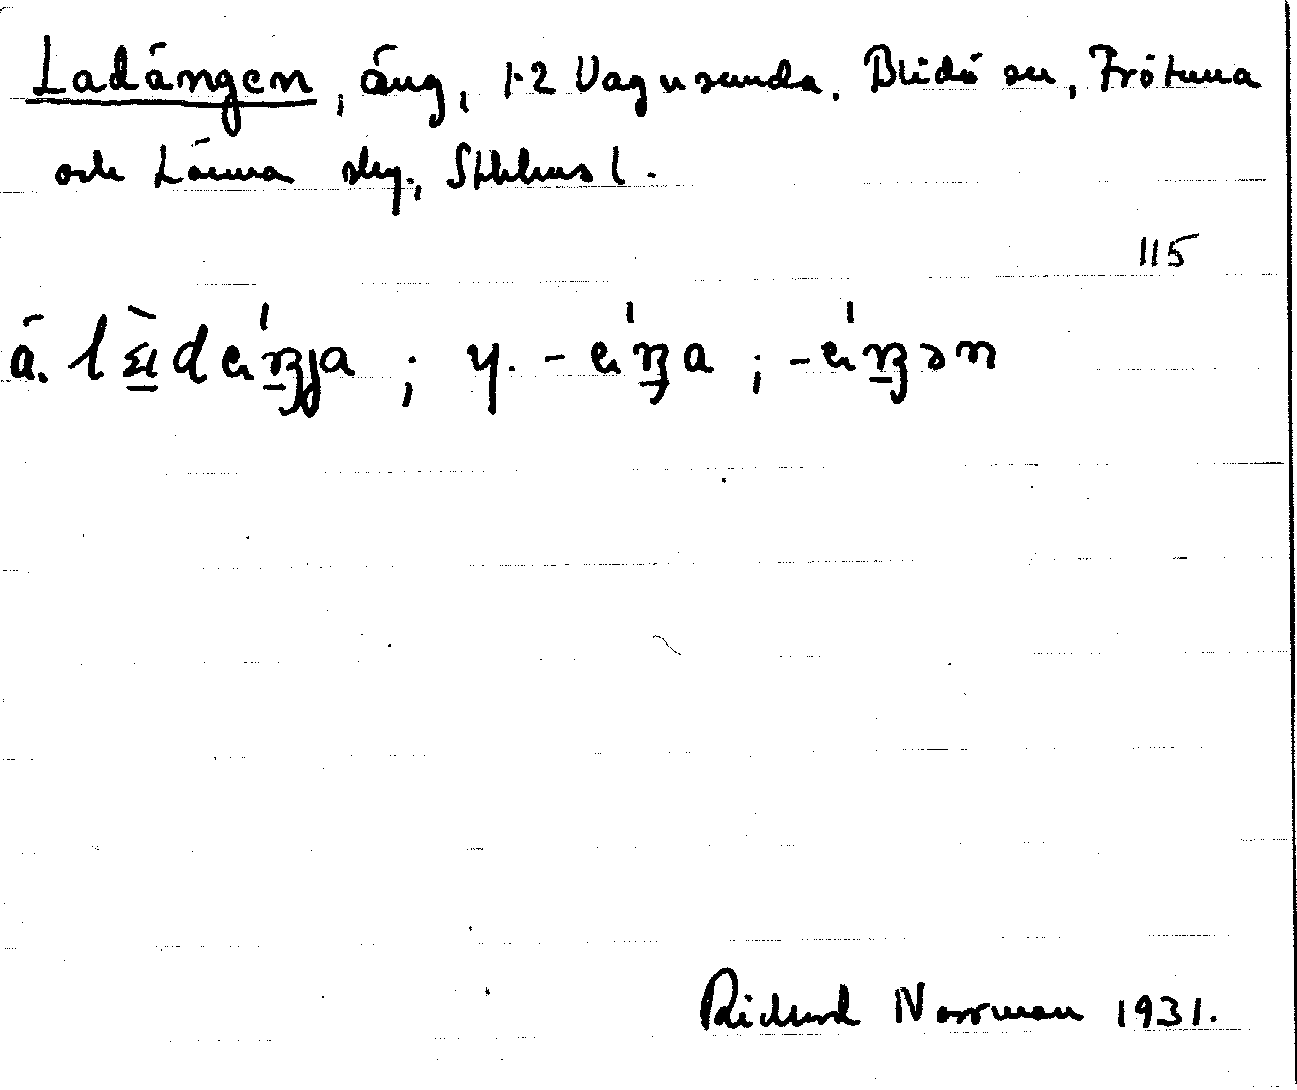 Ladängen, äng, 1-2 Vagnsunda. Blidö sn, Frötuna
och Länna skg., Sthlms l.
115
ä.
; y.
Richard Norrman 1931.